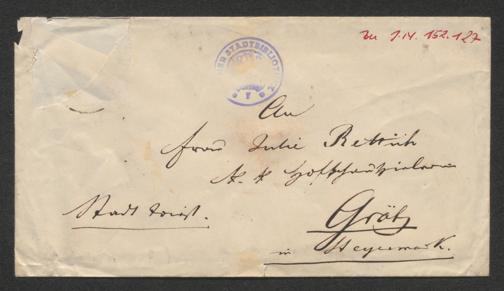 Zu J.N. 152.127
WIENER STADTBIBLIOTHEK
An
Frau Julie Rettich
k. k. Hofschauspielerin
Stadt Triest.
Grätz
in Steyermark.